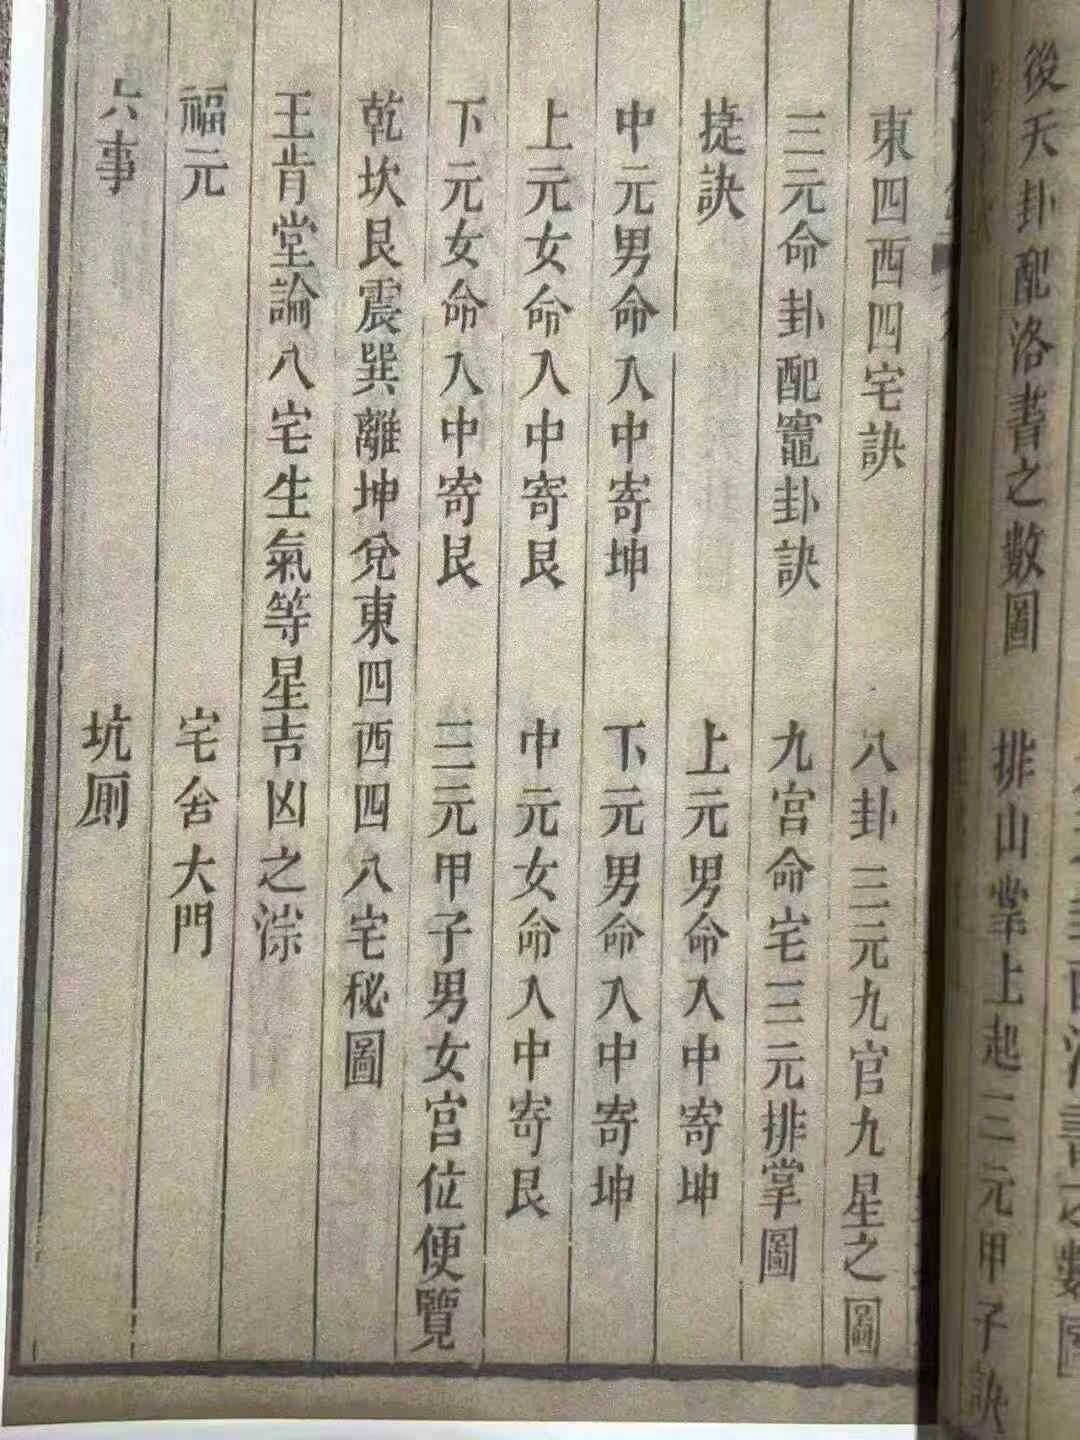 後天卦配洛書之數圖 排山掌上起三元甲子訣
東四西四宅訣 八卦三元九官九星之圖
三元命卦配竈卦訣 九宮命宅三元排掌圖
捷訣 上元男命入中寄坤
中元男命入中寄坤 下元男命入中寄坤
上元女命入中寄艮 中元女命入中寄艮
下元女命入中寄艮 三元甲子男女宮位便覽
乾坎艮震巽離坤兌東四西四八宅秘圖
王肯堂論八宅生氣等星吉凶之淙
福元 宅舍大門
六事 坑厕